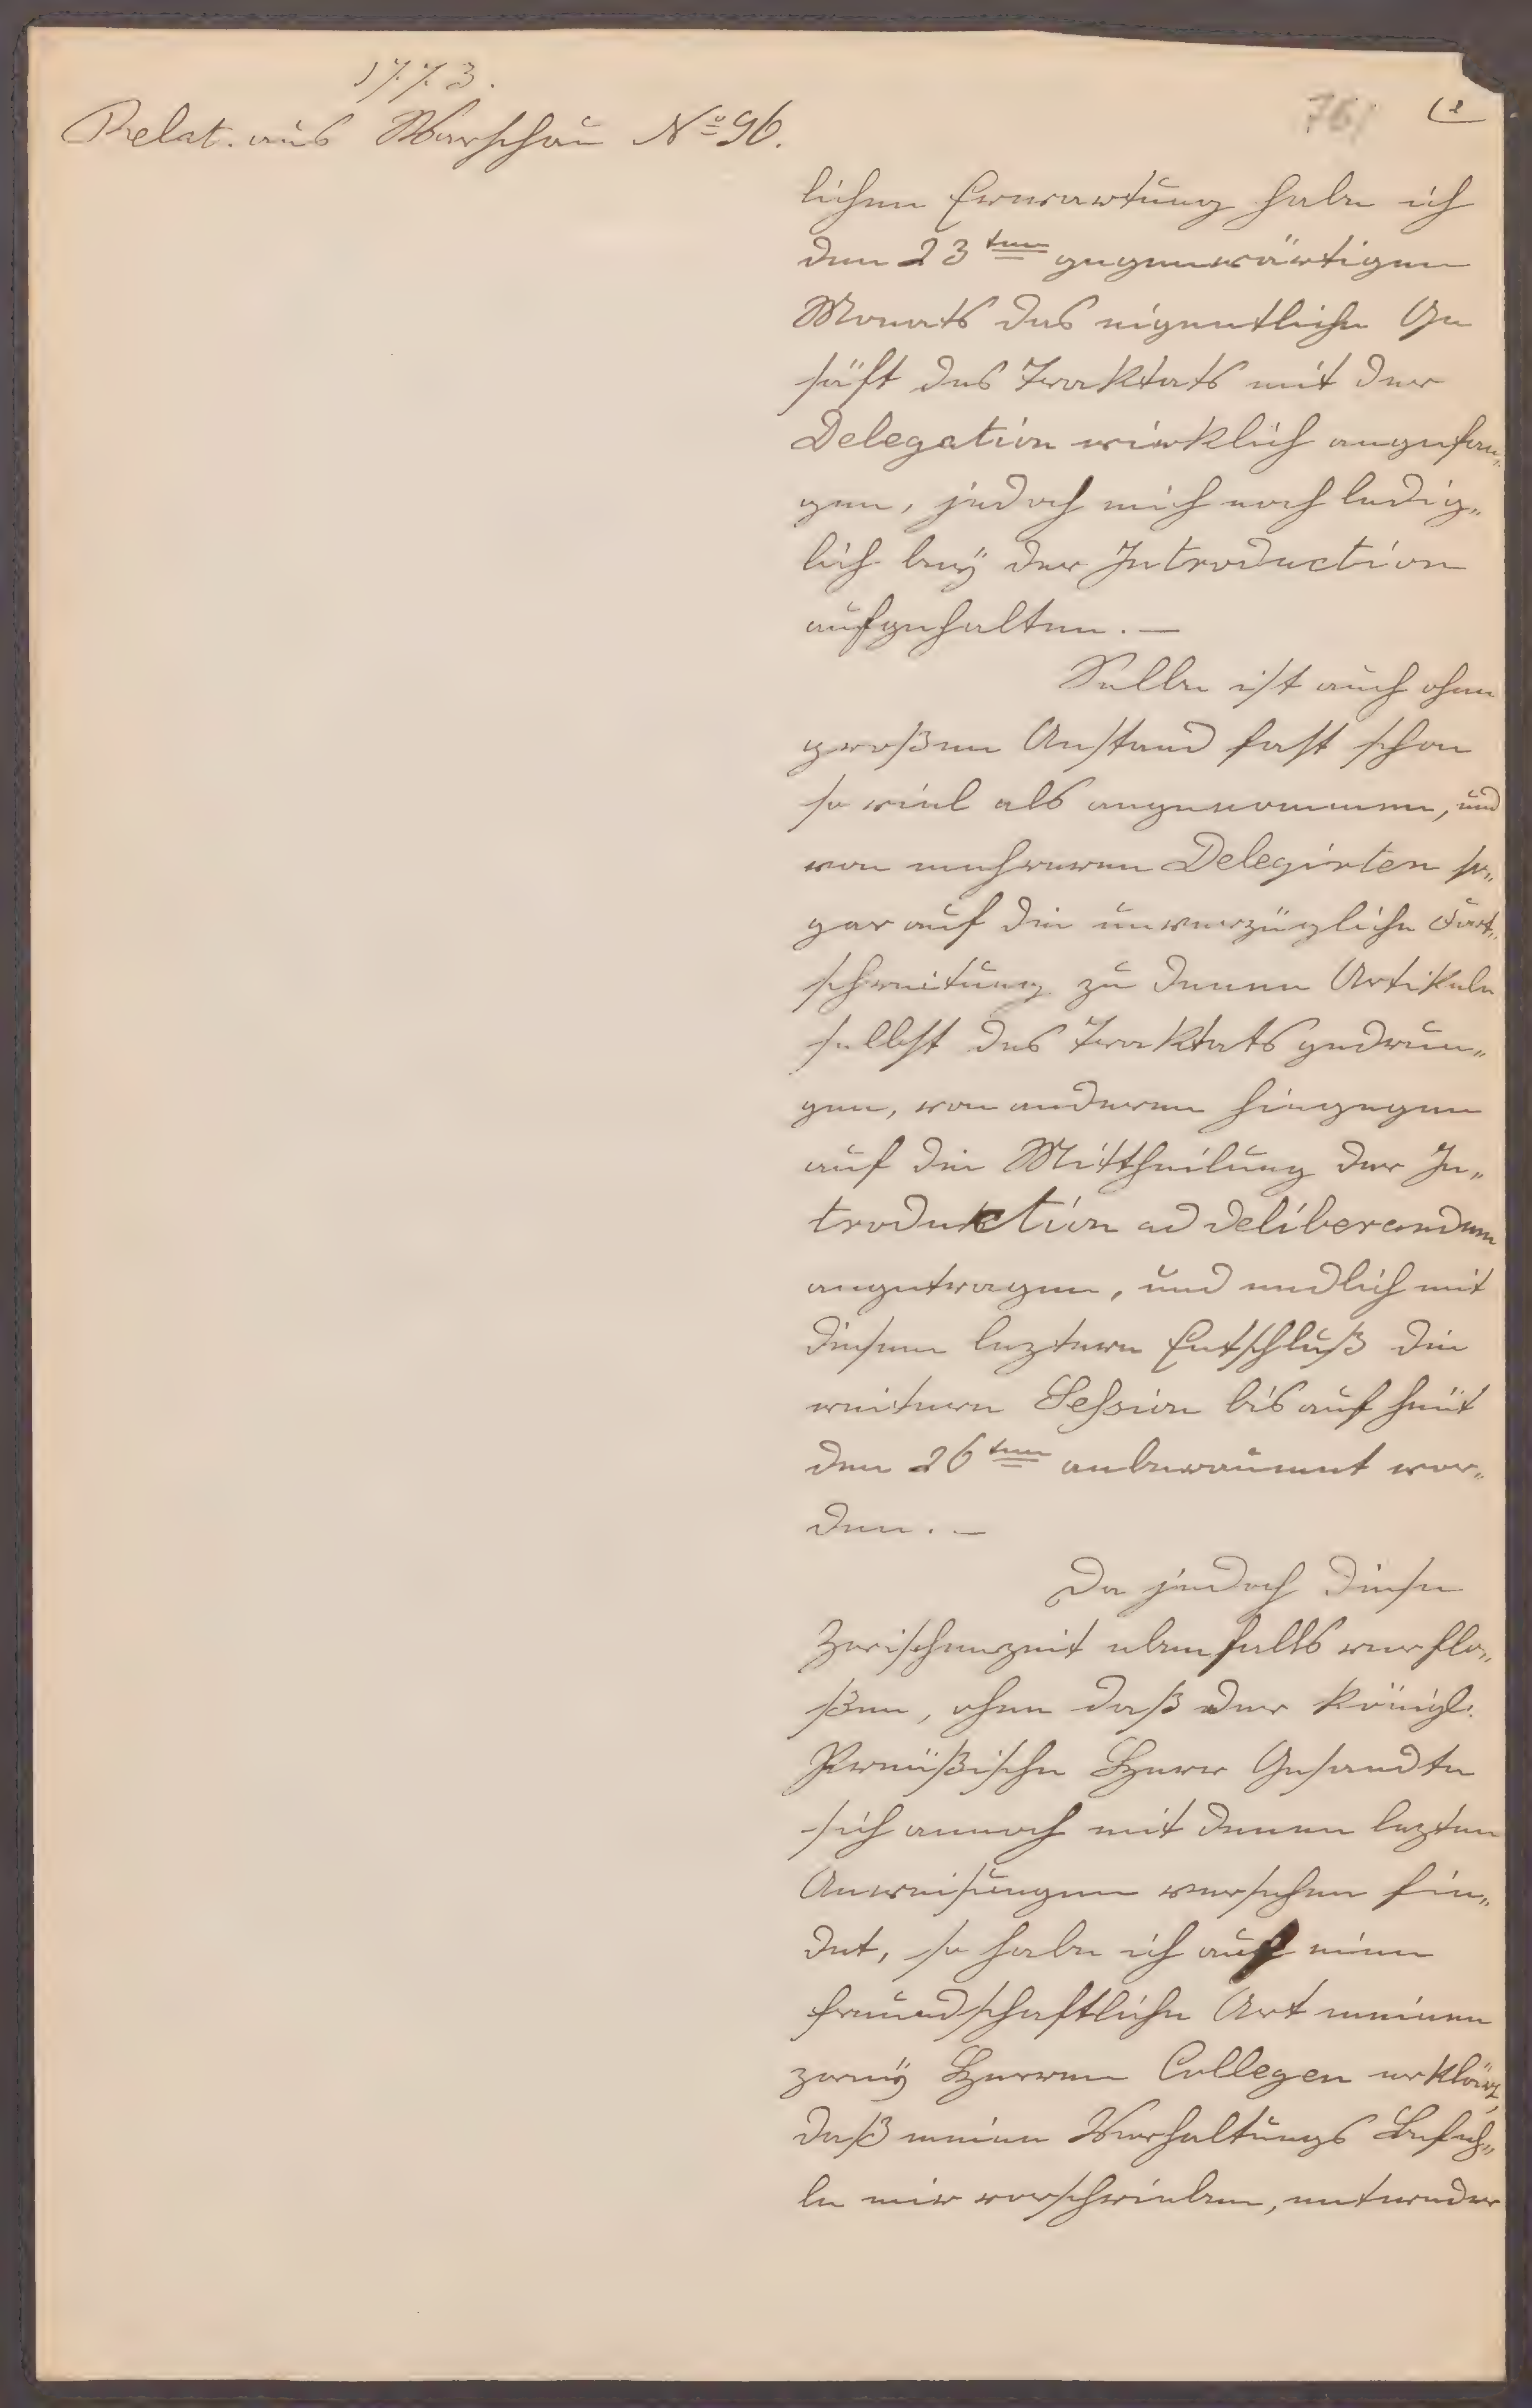 1773.
Relat. aus Warschau No 96.
761
(2
lichen Erwartung habe ich
den 23ten gegenwärtigen
Monats das eigentliche Ge
säft des Traktats mit der
Delegation wirklich angefan„
gen, jedoch mich noch ledig„
lich bey der Introduction
aufgehalten. —
Selbe ist auch ohne
großen Anstand fast schon
so viel als angenommen, und
von mehreren Delegirten so„
gar auf die unverzügliche Fort„
schreitung zu denen Artikeln
selbst des Traktats gedrun„
gen, von anderen hingegen
auf die Mittheilung der In„
troduction ad deliberandum
angetragen, und endlich mit
diesem leztern Entschluß die
weitern Session bis auf heut
den 26ten anberaumt wor„
den. —
Da jedoch diese
Zwischenzeit ebenfalls verflo„
ßen, ohne daß der königl.
Preüßische Herr Gesandte
sich annoch mit denen lezten
Anweisungen versehen fin„
det, so habe ich auf eine
freundschaftliche Art meinen
zwey Herren Collegen erklärt,
daß meine Verhaltungs Befeh„
le mir vorschrieben, entweder